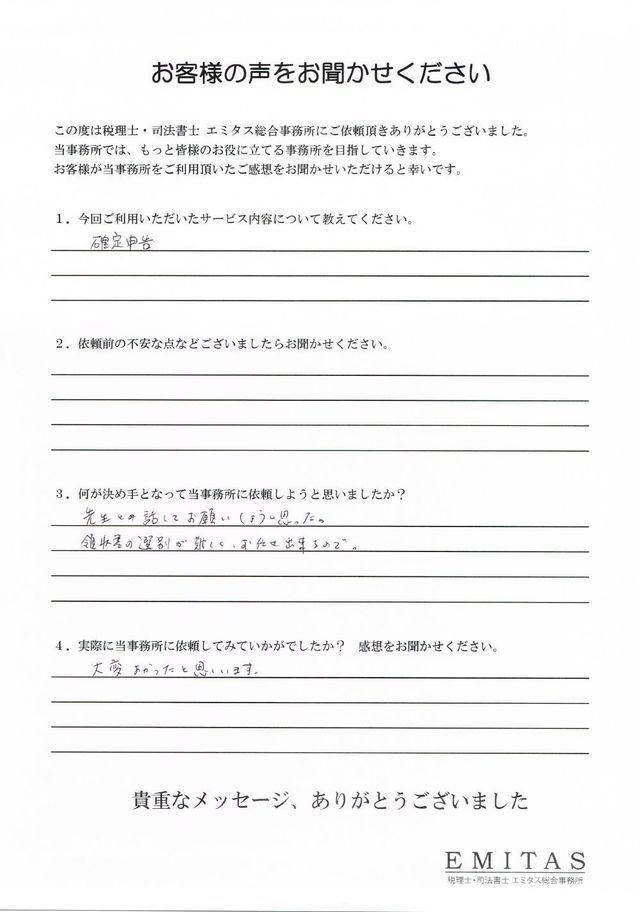 お客様の声をお聞かせください
この度は税理士・司法書士 エミタス総合事務所にご依頼頂きありがとうございました。
当事務所では、もっと皆様のお役に立てる事務所を目指していきます。
お客様が当事務所をご利用頂いたご感想をお聞かせいただけると幸いです。
1．今回ご利用いただいたサービス内容について教えてください。
確定申告
2．依頼前の不安な点などございましたらお聞かせください。
3．何が決め手となって当事務所に依頼しようと思いましたか？
先生との話してお願いしようと思った。
領収書の選別が難しく、お任せ出来るので。
4．実際に当事務所に依頼してみていかがでしたか？ 感想をお聞かせください。
大変よかったと思いいます。
貴重なメッセージ、ありがとうございました
EMITAS
税理士・司法書士 エミタス総合事務所